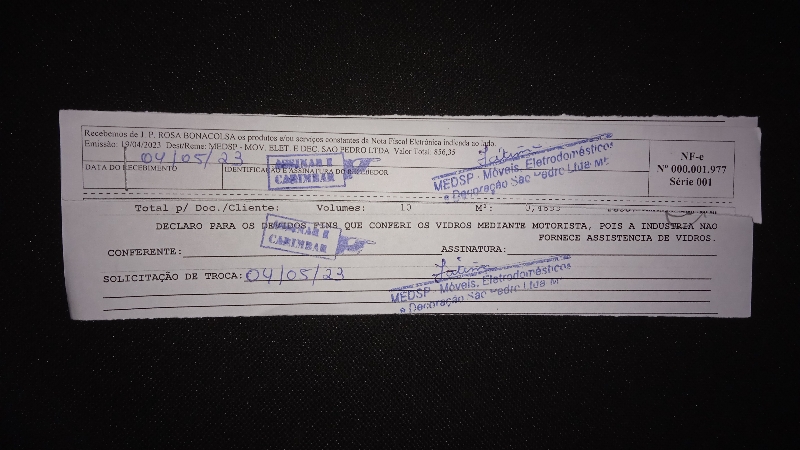 Recebemos de J. P. ROSA BONACOLSA os produtos e/ou serviços constantes da Nota Fiscal Eletrônica indicada ao lado.
Emissão: 19/04/2023 Dest/Reme: MEDSP - MOV. ELET. E DEC. SAO PEDRO LTDA Valor Total: 856,35
04/05/23
DATA DO RECEBIMENTO
IDENTIFICAÇÃO E ASSINATURA DO RECEBEDOR
ASSINAR E
CARIMBAR
MEDSP - Móveis, Eletrodomésticos
e Decoração São Pedro Ltda ME
NF-e
Nº 000.001.977
Série 001
Total p/ Doc./Cliente: Volumes: 10 M³:
DECLARO PARA OS DEVIDOS FINS QUE CONFERI OS VIDROS MEDIANTE MOTORISTA, POIS A INDUSTRIA NAO
FORNECE ASSISTENCIA DE VIDROS.
ASSINAR E
CARIMBAR
CONFERENTE: ASSINATURA:
SOLICITAÇÃO DE TROCA: 04/05/23
MEDSP - Móveis, Eletrodomésticos
e Decoração São Pedro Ltda ME